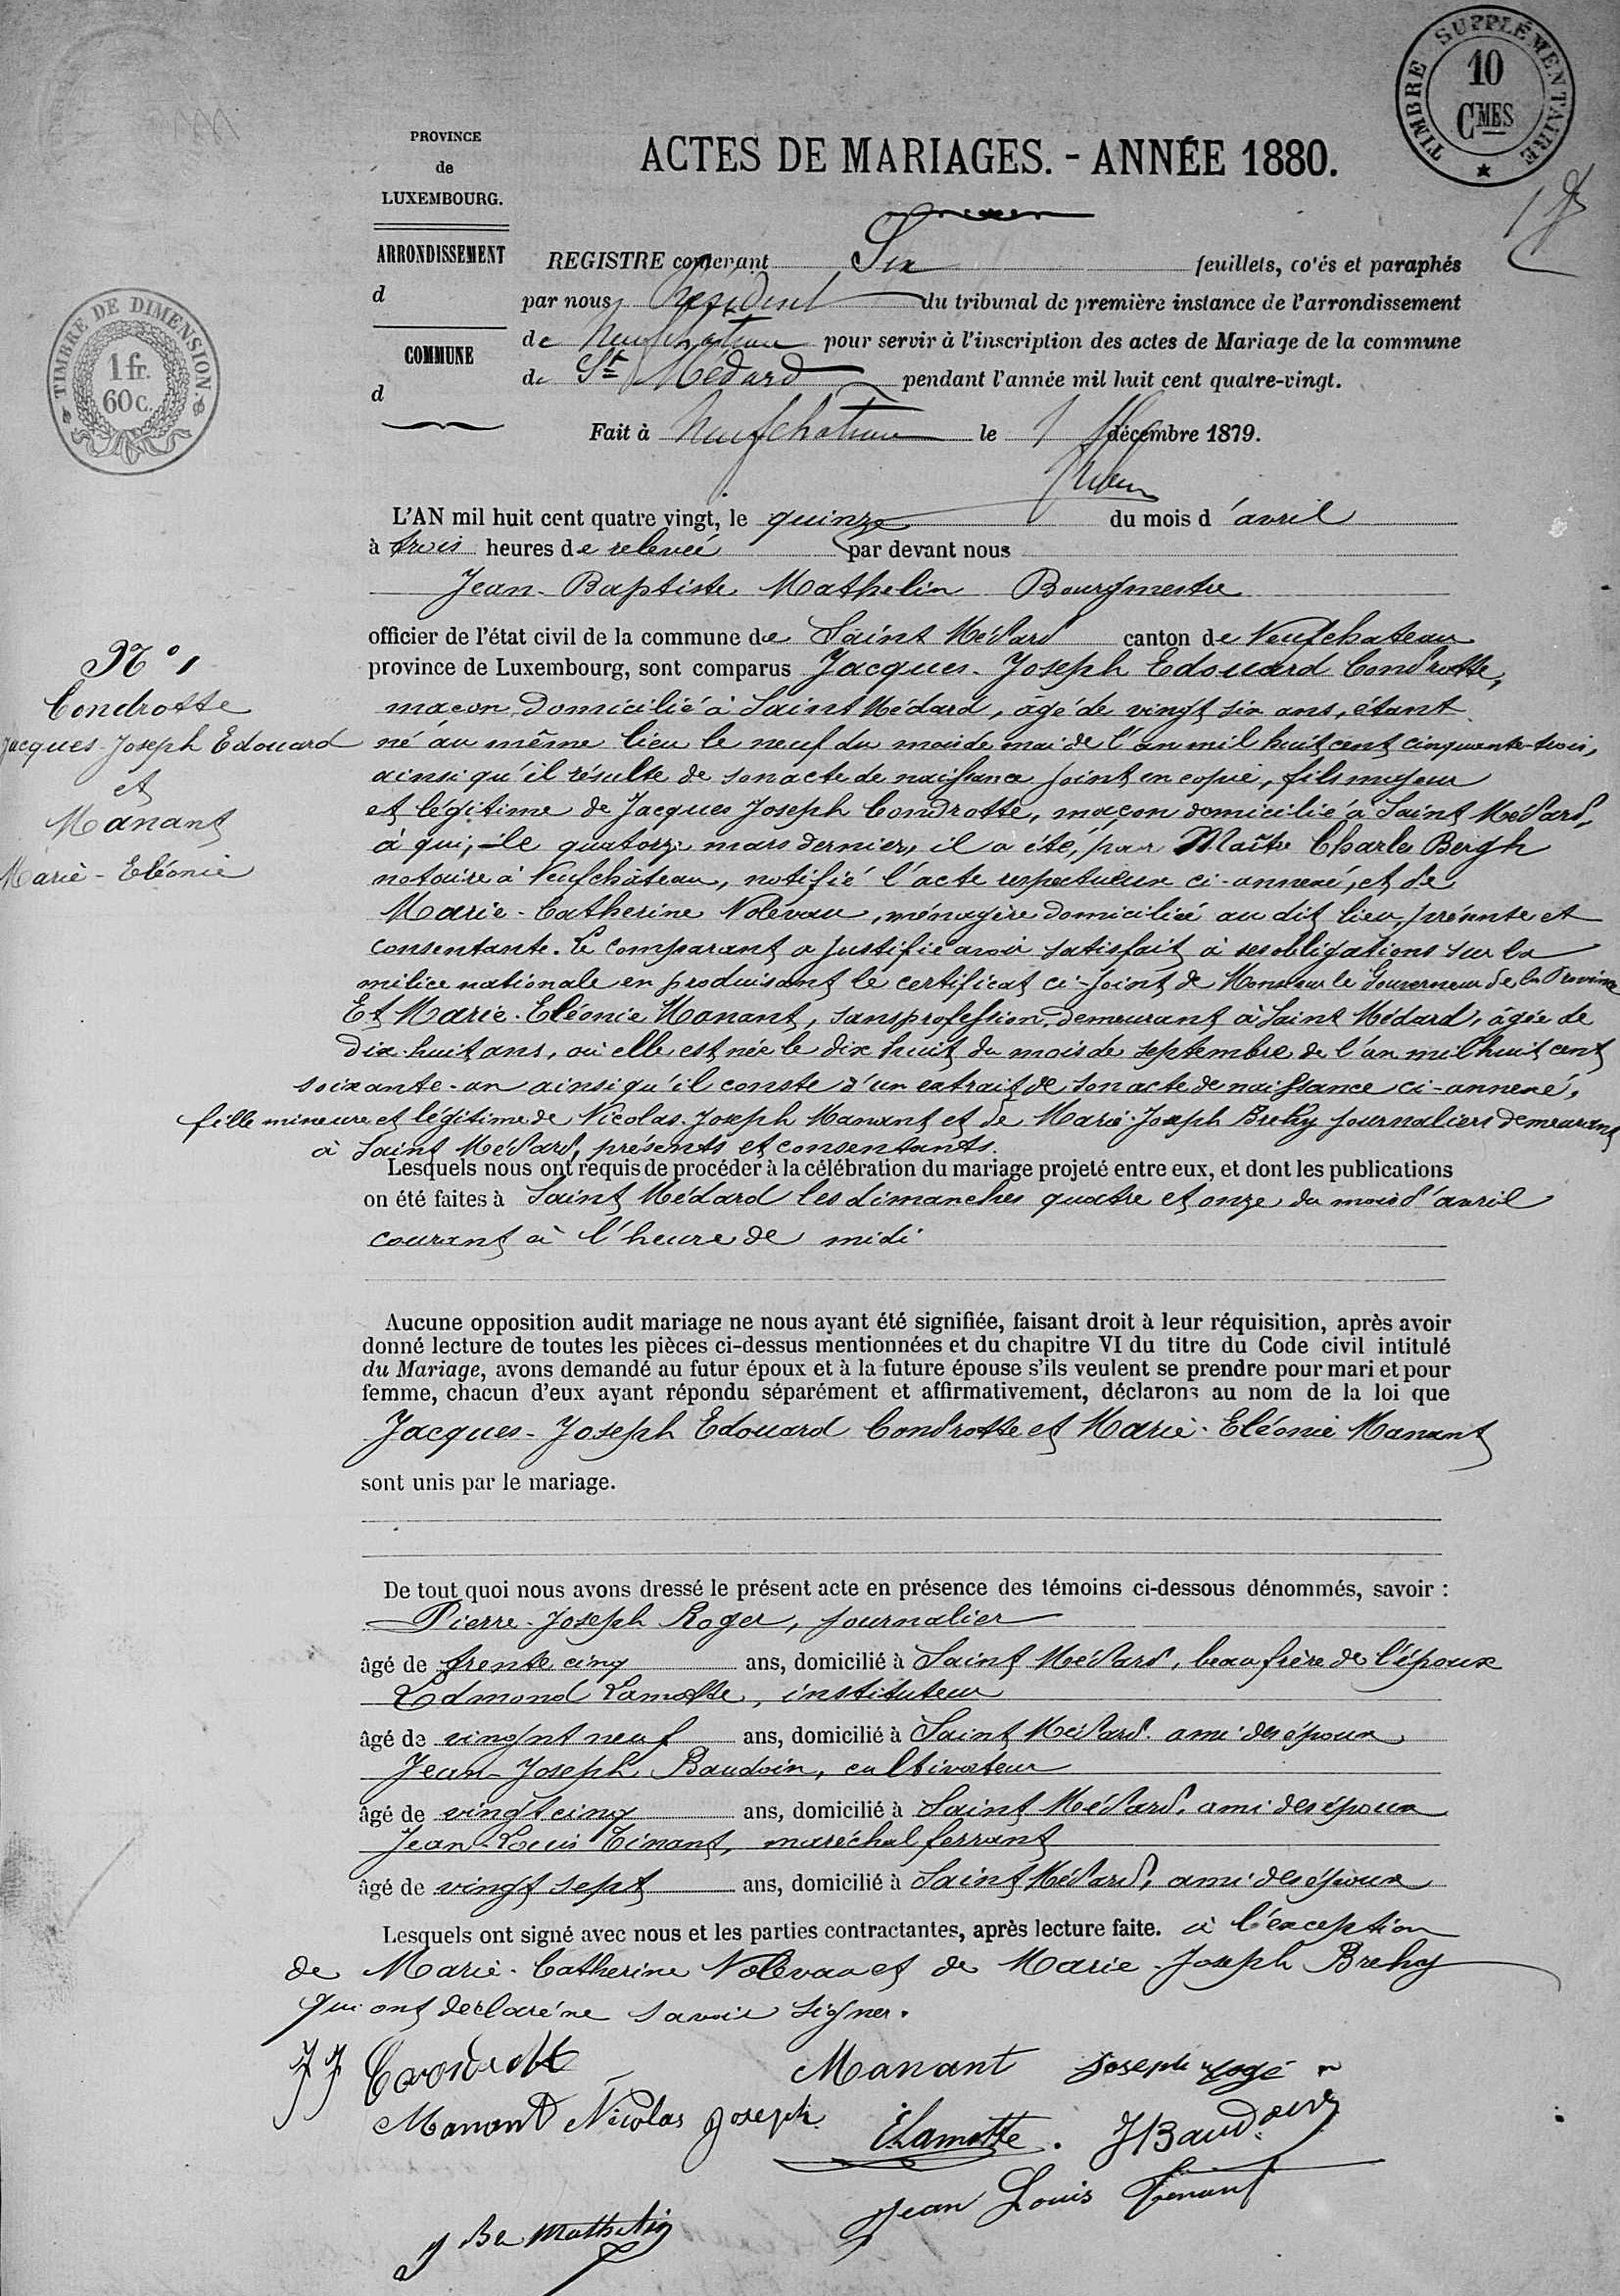 TIMBRE SUPPLÉMENTAIRE
10
CMES
PROVINCE
de
LUXEMBOURG.
ACTES DE MARIAGES. - ANNÉE 1880.
ARRONDISSEMENT
d
COMMUNE
d
TIMBRE DE DIMENSION
1 fr.
60 c.
REGISTRE contenant Six feuillets, cotés et paraphés
par nous, Président du tribunal de première instance de l'arrondissement
de Neufchateau pour servir à l'inscription des actes de Mariage de la commune
de St Médard pendant l'année mil huit cent quatre-vingt.
Fait à Neufchateau le 1 décembre 1879.
L'AN mil huit cent quatre vingt, le quinze du mois d'avril
à trois heures de relevée par devant nous
Jean-Baptiste Mathelin Bourgmestre
officier de l'état civil de la commune de Saint Médard canton de Neufchateau
province de Luxembourg, sont comparus Jacques-Joseph Edouard Condrotte,
N° 1
Condrotte
Jacques-Joseph Edouard
et
Manant
Marie-Eléonie
maçon, domicilié à Saint Médard, âgé de vingt six ans, étant
né au même lieu le neuf du mois de mai de l'an mil huit cent cinquante-trois,
ainsi qu'il résulte de son acte de naissance joint en copie, fils majeur
et légitime de Jacques Joseph Condrotte, maçon domicilié à Saint Médard,
à qui, le quatorze mars dernier, il a été, par Maître Charles Bergh
notaire à Neufchâteau, notifié l'acte respectueux ci-annexé, et de
Marie-Catherine Nolévau, ménagère domiciliée au dit lieu, présente et
consentante. Le comparant a justifié avoir satisfait à ses obligations sur la
milice nationale en produisant le certificat ci-joint de Monsieur le Gouverneur de la Province
Et Marie-Eléonie Manant, sans profession, demeurant à Saint Médard, âgée de
dix-huit ans, où elle est née le dix huit du mois de septembre de l'an mil huit cent
soixante-un ainsi qu'il conste d'un extrait de son acte de naissance ci-annexé,
fille mineure et légitime de Nicolas-Joseph Manant et de Marie-Joseph Brehy journaliers demeurant
à Saint Médard, présents et consentants.
Lesquels nous ont requis de procéder à la célébration du mariage projeté entre eux, et dont les publications
on été faites à Saint Médard les dimanches quatre et onze du mois d'avril
courant à l'heure de midi
Aucune opposition audit mariage ne nous ayant été signifiée, faisant droit à leur réquisition, après avoir
donné lecture de toutes les pièces ci-dessus mentionnées et du chapitre VI du titre du Code civil intitulé
du Mariage, avons demandé au futur époux et à la future épouse s'ils veulent se prendre pour mari et pour
femme, chacun d'eux ayant répondu séparément et affirmativement, déclarons au nom de la loi que
Jacques-Joseph Edouard Condrotte et Marie-Eléonie Manant
sont unis par le mariage.
De tout quoi nous avons dressé le présent acte en présence des témoins ci-dessous dénommés, savoir :
Pierre-Joseph Roger, journalier
âgé de trente cinq ans, domicilié à Saint Médard, beau frère de l'époux
Edmond Lamotte, instituteur
âgé de vingnt neuf ans, domicilié à Saint Médard. ami des époux
Jean-Joseph Baudoin, cultivateur
âgé de vingt cinq ans, domicilié à Saint Médard, ami des époux
Jean-Louis Tinant, maréchal ferrant
âgé de vingt sept ans, domicilié à Saint Médard, ami des époux
Lesquels ont signé avec nous et les parties contractantes, après lecture faite. à l'exception
de Marie-Catherine Nolévau et de Marie-Joseph Brehy
qui ont déclaré ne savoir signer.
JJ Condrotte Manant Joseph Rogé
Manant Nicolas Joseph ELamotte. JJBaudoin
Jean Louis Tinant
J Bte Mathelin